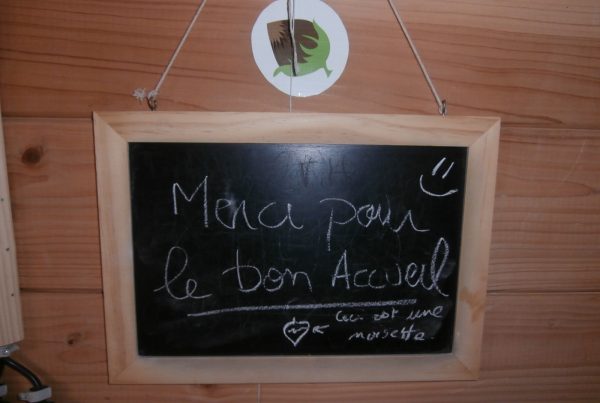 Merci pour
le bon Accueil
Ceci est une
noisette.